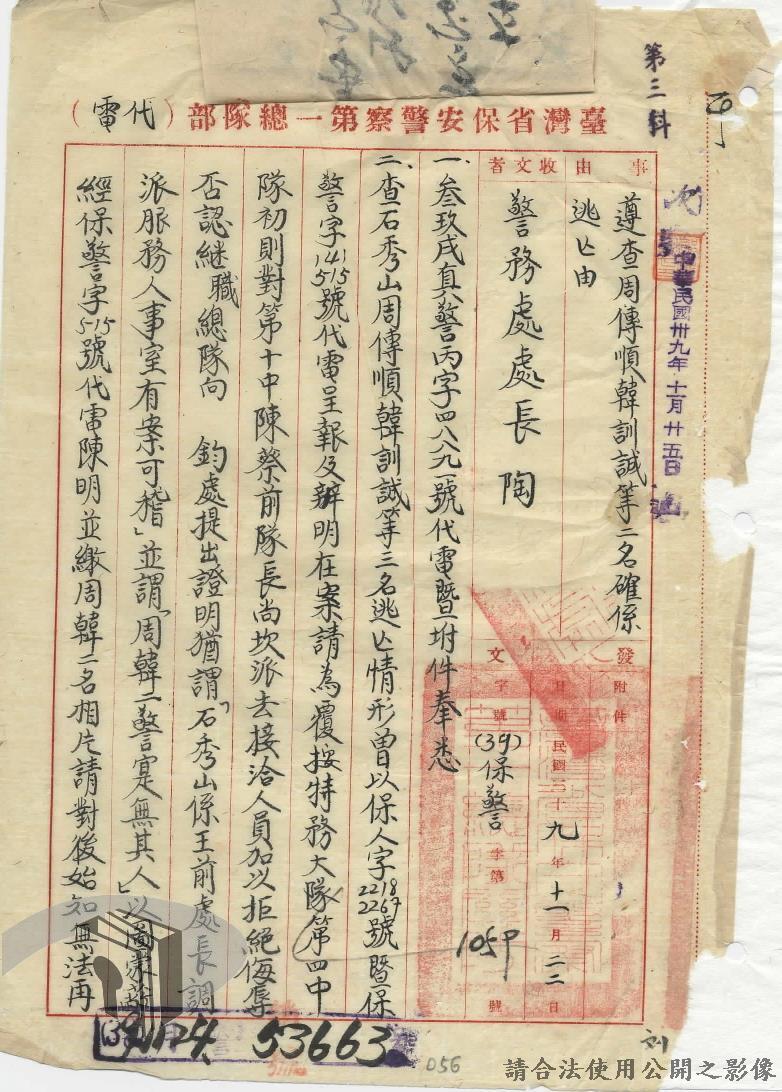 第三科
臺灣省保安警察第一總隊部(代電)
中華民國卅九年十一月廿五日
事由
遵查周傳順韓訓誠等二名確係
逃亡由
收文者
警務處處長陶
發文
附件
日期民國三十九年十一月二二日
字號(39)保警字第1059號
一、叁玖戌真警丙字四八八九一號代電暨附件奉悉
二、查石秀山周傳順韓訓誠等三名逃亡情形曾以保人字2218 2267號暨保
警字141 515號代電呈報及辦明在案請為覆按特務大隊第四中
隊初則對第十中隊蔡前隊長尚坎派去接洽人員加以拒絕侮辱
否認継職總隊向 鈞處提出證明猶謂「石秀山係王前處長調
派服務人事室有案可稽」並謂「周韓二警寔無其人」以圖蒙蔽
經保警字515號代電陳明並繳周韓二名相片請對後始知無法再
39.11.24.
53663
056
刘
請合法使用公開之影像